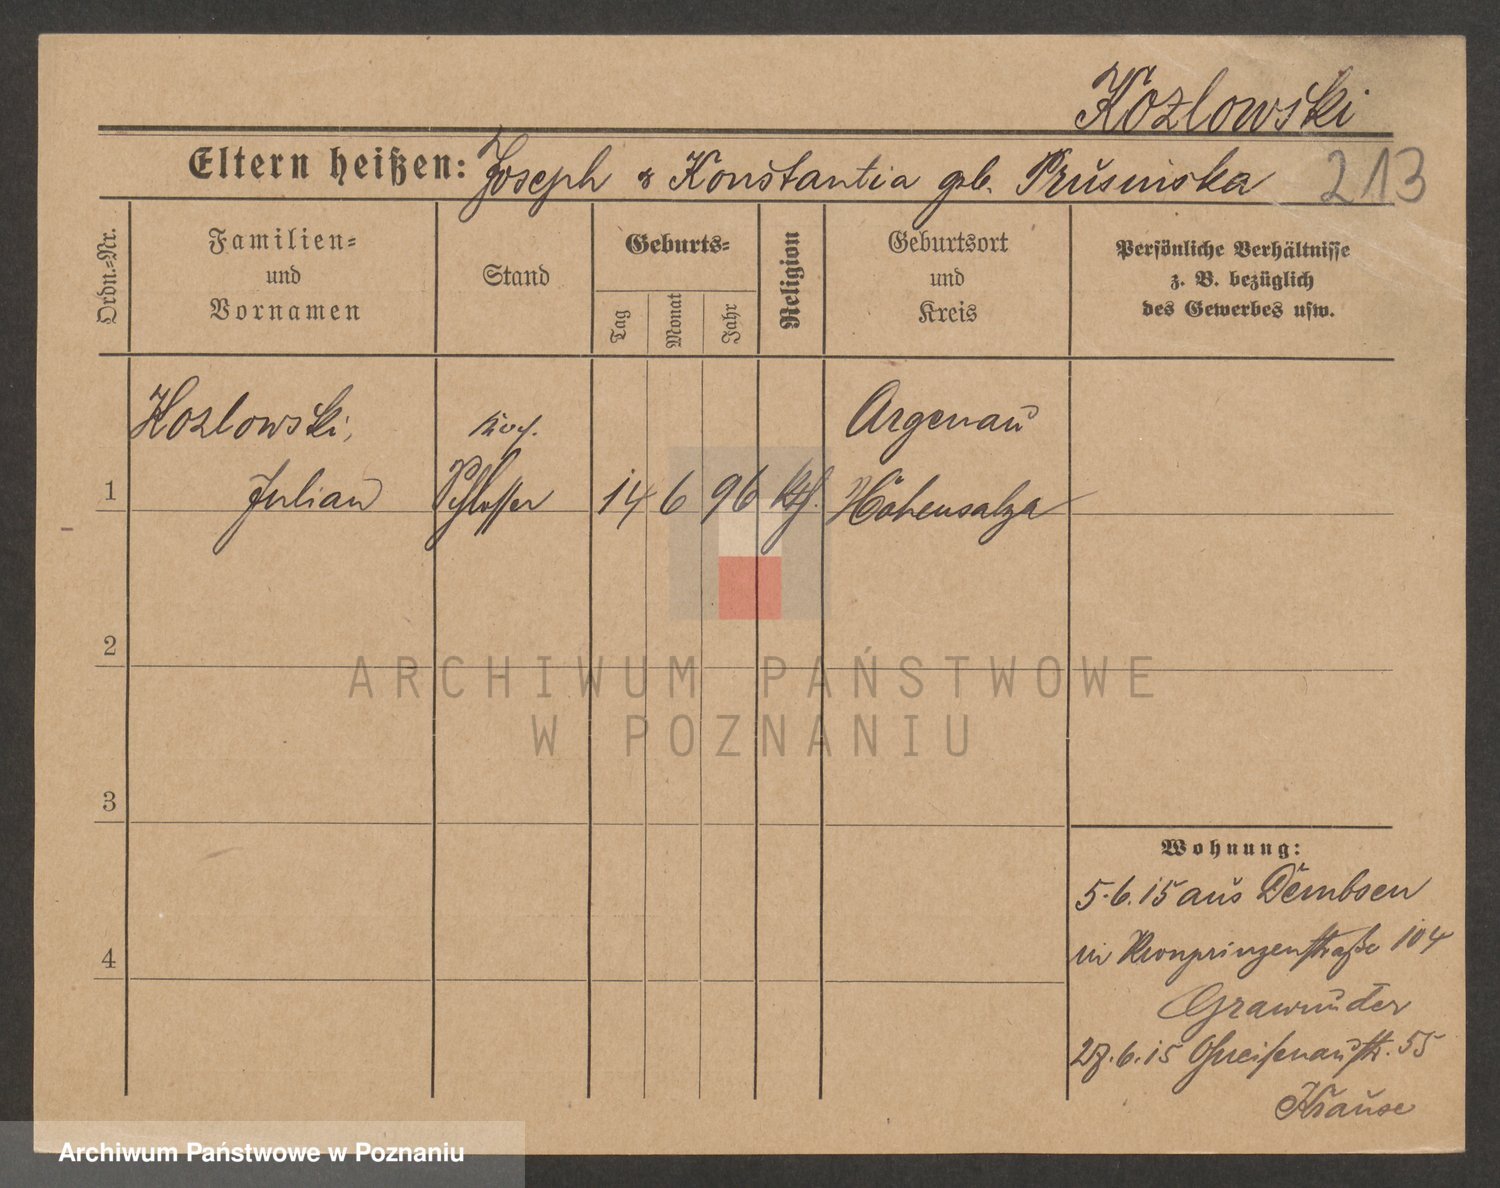 Kozlowski
Eltern heißen: Joseph & Konstantia geb. Prusinska 213
Ordn.-Nr.
Familien-
und
Vornamen
Stand
Geburts-
Tag
Monat
Jahr
Religion
Geburtsort
und
Kreis
Persönliche Verhältnisse
z. B. bezüglich
des Gewerbes usw.
Kozlowski, Argenau
1 Julian Schlosser 14 6 96 kth. Hohensalza
2
3
4
Wohnung:
5.6.15 aus Dembsen
in Kronprinzenstraße 104
27.6.15 Gneisenaustr. 55
Krause
ARCHIWUM PAŃSTWOWE
W POZNANIU
Archiwum Państwowe w Poznaniu